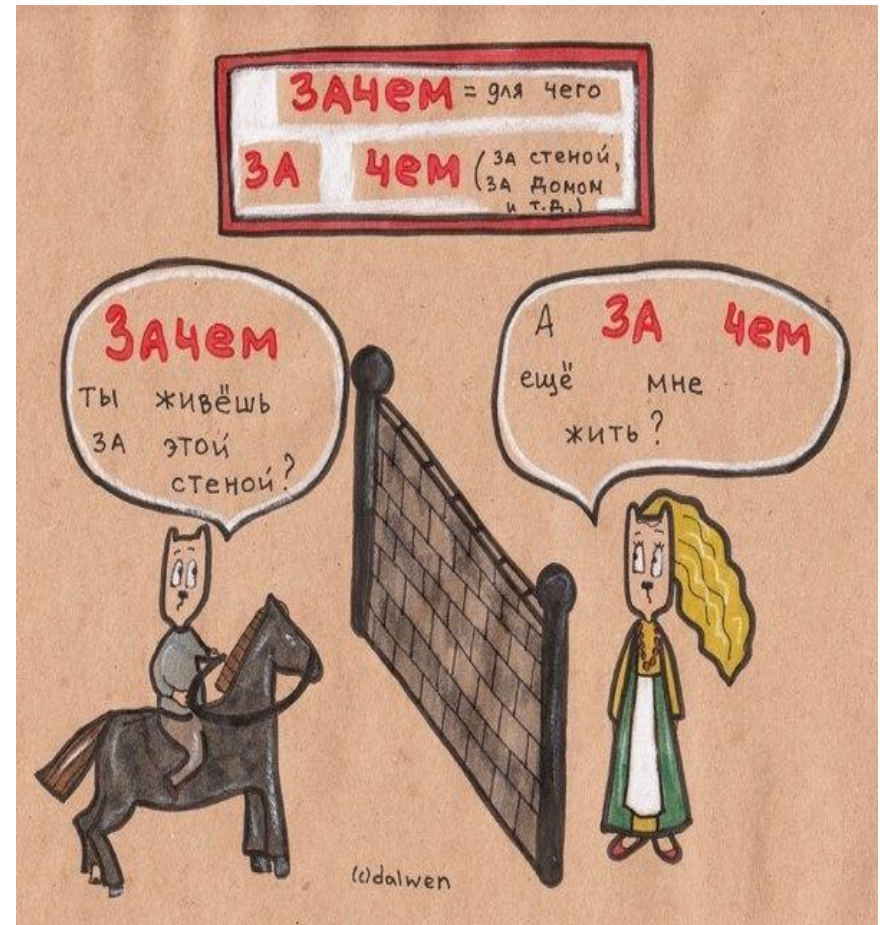 ЗАЧЕМ = для чего
ЗА ЧЕМ (ЗА СТЕНОЙ,
ЗА ДОМОМ
и т.д.)
ЗАЧЕМ
ТЫ ЖИВЁШЬ
ЗА ЭТОЙ
СТЕНОЙ?
А ЗА ЧЕМ
ЕЩЁ МНЕ
ЖИТЬ?
(c)dalwen